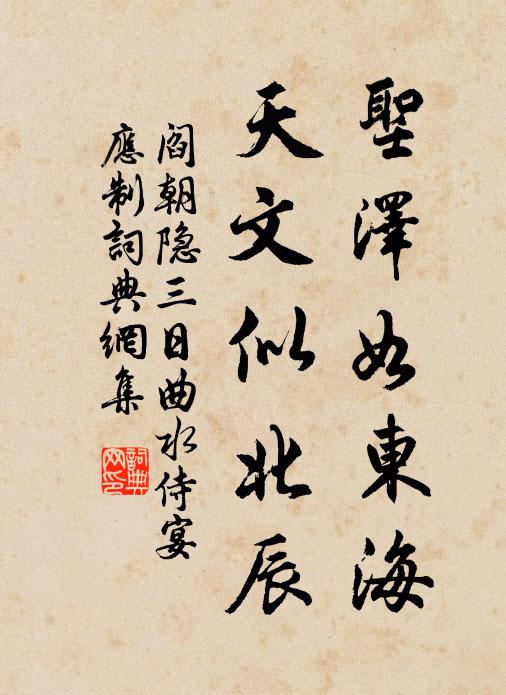 聖澤如東海
天文似北辰
閻朝隐三日曲水侍宴
應制詞典網集
詞典
网印